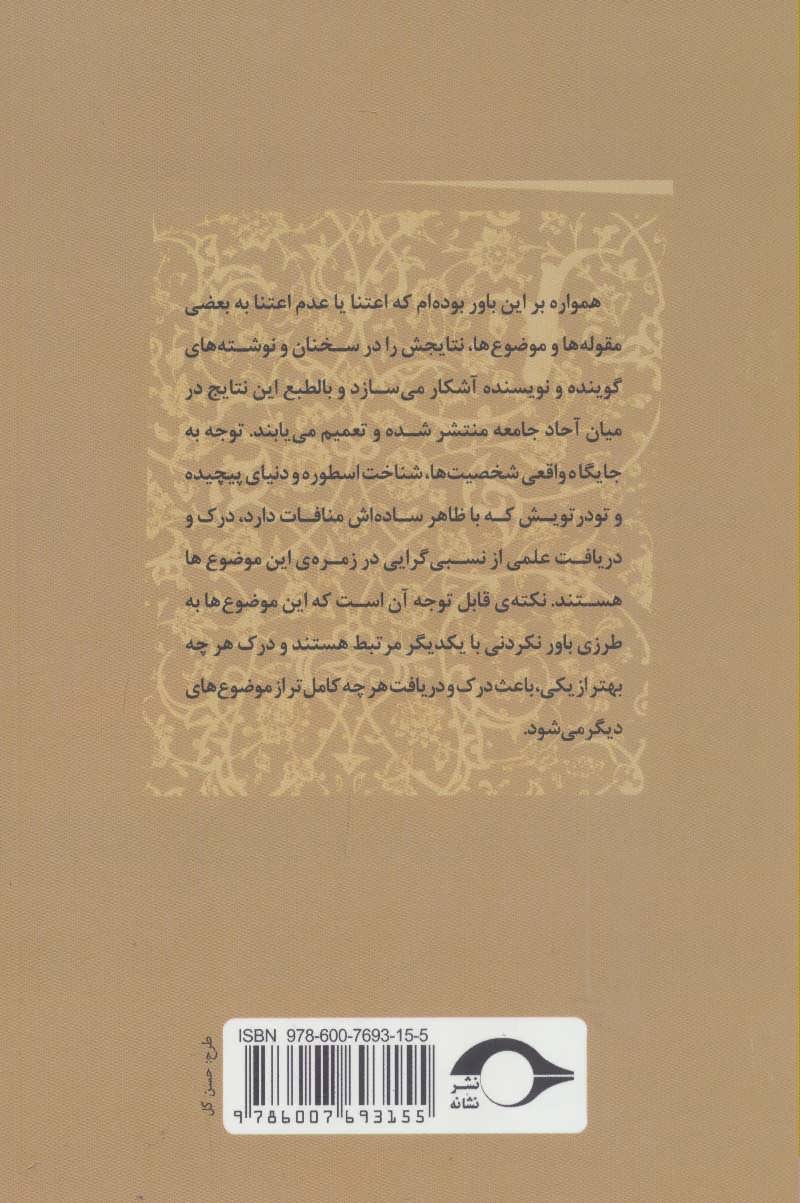 همواره بر این باور بوده‌ام که اعتنا یا عدم اعتنا به بعضی
مقوله‌ها و موضوع‌ها، نتایجش را در سخنان و نوشته‌های
گوینده و نویسنده آشکار می‌سازد و بالطبع این نتایج در
میان آحاد جامعه منتشر شده و تعمیم می‌یابند. توجه به
جایگاه واقعی شخصیت‌ها، شناخت اسطوره و دنیای پیچیده
و تودرتویش که با ظاهر ساده‌اش منافات دارد، درک و
دریافت علمی از نسبی‌گرایی در زمره‌ی این موضوع ها
هستند. نکته‌ی قابل توجه آن است که این موضوع‌ها به
طرزی باور نکردنی با یکدیگر مرتبط هستند و درک هر چه
بهتر از یکی، باعث درک و دریافت هر چه کامل‌تر از موضوع‌های
دیگر می‌شود.
طرح: حسن گل
ISBN 978-600-7693-15-5
9 786007 693155
نشر
نشانه